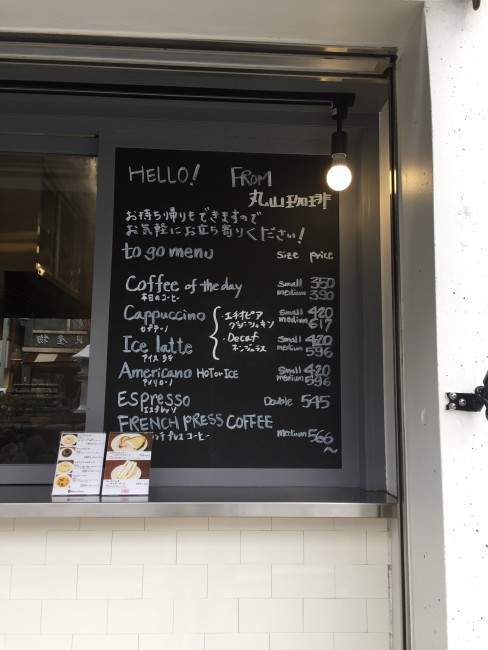 HELLO! FROM
丸山珈琲
お持ち帰りもできますので
お気軽にお立ち寄りください!
to go menu size price
Coffee of the day small 350
本日のコーヒー medium 390
Cappuccino small 420
カプチーノ medium 617
・エチオピア
・Decaf
ホンジュラス
Ice latte small 420
アイスラテ medium 596
Americano HOT or ICE small 420
アメリカーノ medium 596
Espresso Double 545
エスプレッソ
FRENCH PRESS COFFEE medium 566
フレンチプレスコーヒー ~